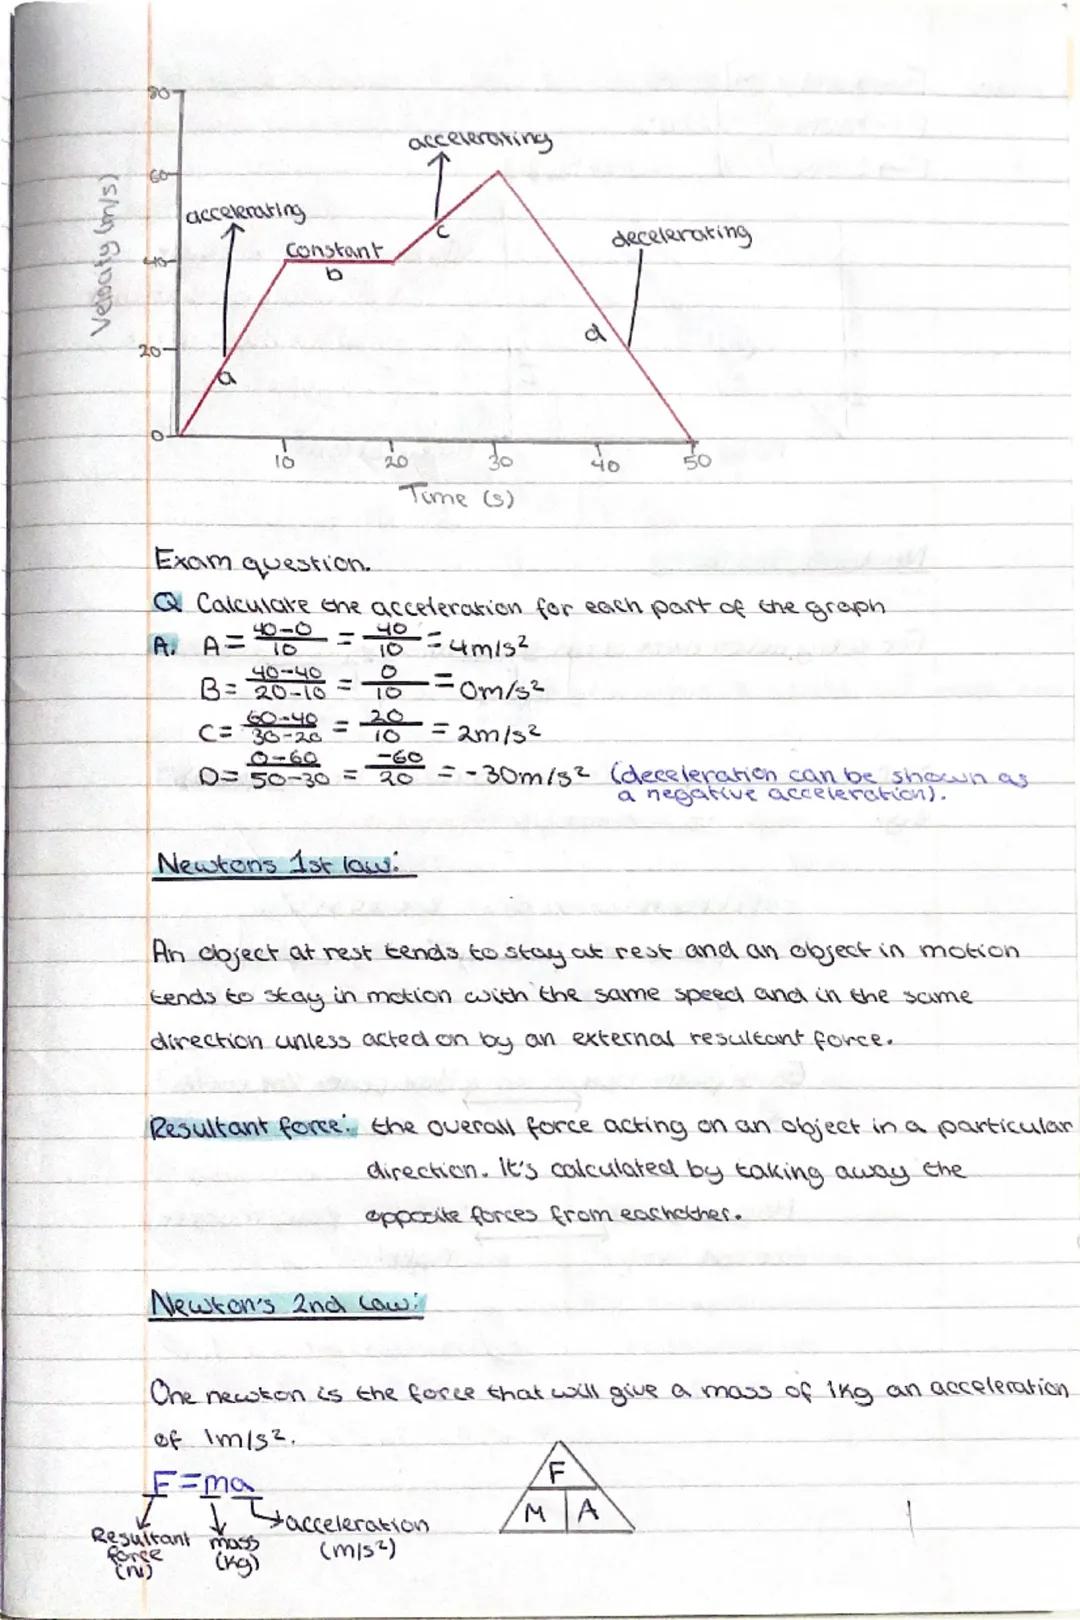 80
accelerating
60
accelerating
Velocity (m/s)
constant
decelerating
c
40
b
d
20
a
0
10 20 30 40 50
Time (s)
Exam question.
Q Calculate the acceleration for each part of the graph
A. A = 40-0/10 = 40/10 = 4m/s²
B = 40-40/20-10 = 0/10 = 0m/s²
C = 60-40/30-20 = 20/10 = 2m/s²
D = 0-60/50-30 = -60/20 = -30m/s² (deceleration can be shown as
a negative acceleration).
Newtons 1st law:
An object at rest tends to stay at rest and an object in motion
tends to stay in motion with the same speed and in the same
direction unless acted on by an external resultant force.
Resultant force: the overall force acting on an object in a particular
direction. it's calculated by taking away the
opposite forces from eachother.
Newton's 2nd law:
One newton is the force that will give a mass of 1kg an acceleration
of 1m/s².
F=ma
F
M A
Resultant force (N)
mass (kg)
acceleration (m/s²)